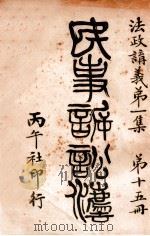 法政講義第一集 第十五冊
民事訴訟法
丙午社印行